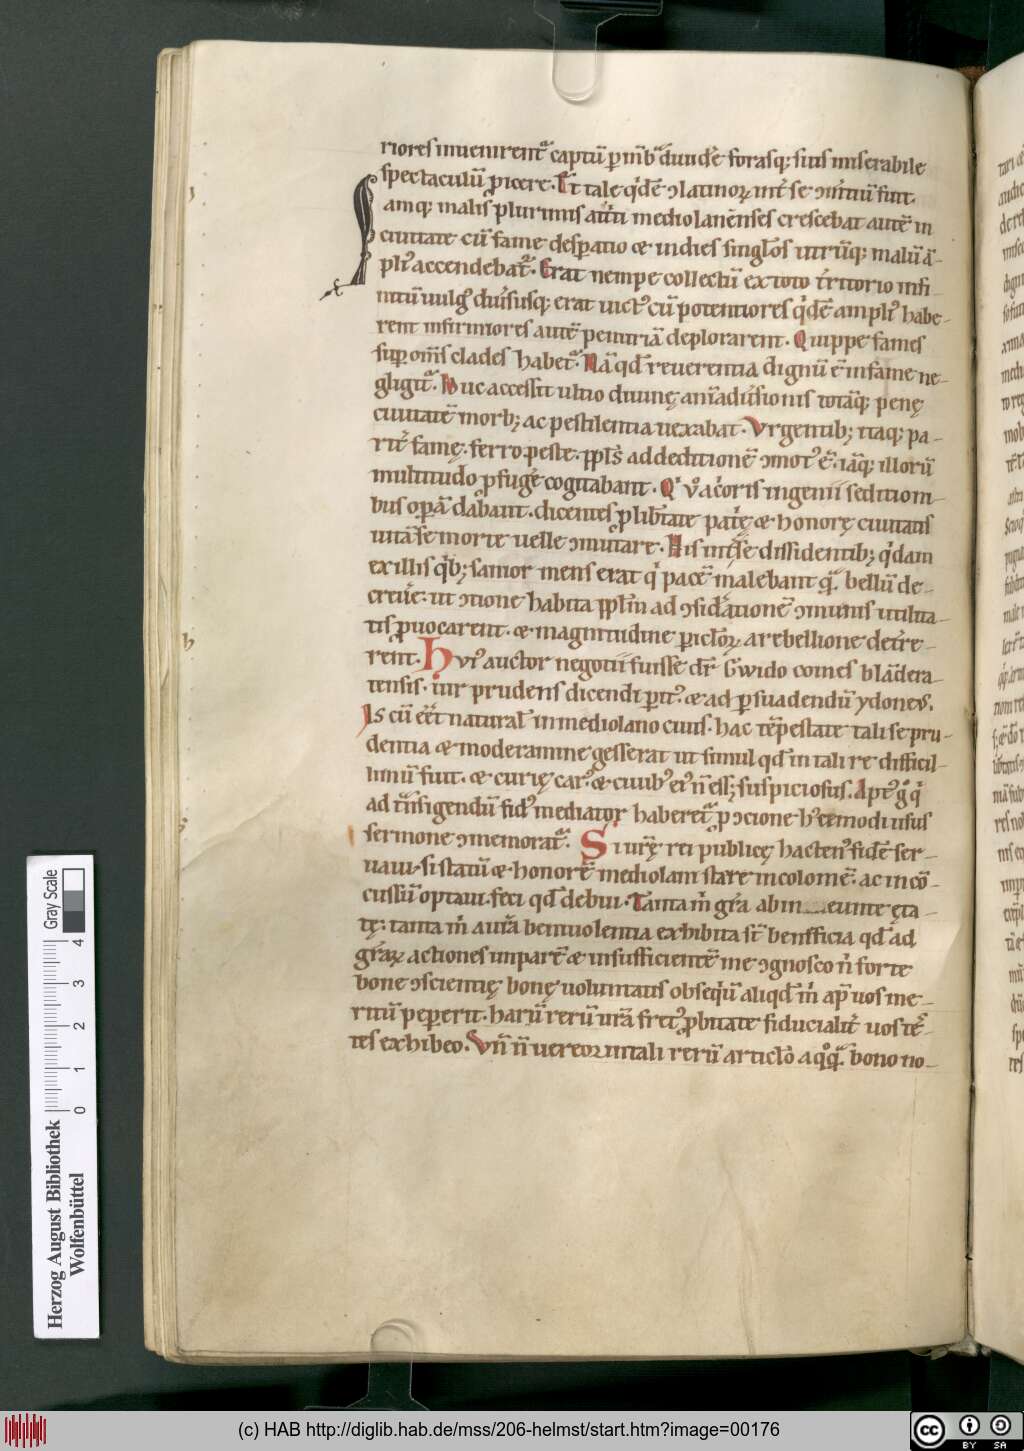 riores inuenirent᷑ captū p̄ mb᷑a diuid͛e forasq; sui miserabile
spectaculū ꝓicere. Et tale qͥdē ꝯlatinoꝝ int͛ se ꝯm̄tiū fuit.
Iamq; malis plurimis attͥti mediolanēnses crescebat autē in
ciuitate cū fame desꝑatio ⁊ indies singlos utrūq; malū ā-
plꝰ accendebat᷑. Erat nempe collectū ex toto t͛ritorio infi-
nitū uulgꝰ diu͛susq; erat uictꝰ cū potentiores qͥdē amplꝰ habe-
rent infirmiores autē penuriā deplorarent. Quippe fames
suꝑ om̄s clades habet᷑. Nā qd̄ reuerentia dignū ē in fame ne-
gligit᷑. Huc accessit ultio diuinę anīadu͛sionis totāq; penę
ciuitatē morb; ac pestilentia uexabat. Vrgentib; itaq; pa-
rit͛ famę. ferro. peste. ppl̄s ad deditionē ꝯmotꝰ ē. iāq; illorū
multitudo ꝓfug͛e cogitabant. Qͥ u͛o ac͛oris ingenii seditioni-
bus oꝑā dabant. dicentes ꝓ lib͛tate pat͛ę ⁊ honorę ciuitatis
uitā se morte uelle ꝯmutare. His int͛ se dissidentib; qͥdam
ex illis qͥb; sanior mens erat qͥ pacē malebant qᷓ bellū de-
creu͛e. ut ꝯtione habita ppl̄m ad ꝯsid͛ationē ꝯmunis utilita-
tis ꝓuocarent. ⁊ magnitudine ꝑicloꝝ a rebellione det͛re-
rent. Huiꝰ auctor negotii fuisse dr̄ Gwido comes blādera-
tensis. uir prudens dicendi ꝑitꝰ. ⁊ ad ꝑsuadendū ydoneꝰ.
Is cū eēt natural̄ in mediolano ciuis. hac tēpestate tali se pru-
dentia ⁊ moderamine gesserat ut simul qd̄ in tali re difficil-
limū fuit. ⁊ curię carꝰ ⁊ ciuibꝰ eiꝰ n̄ ess; suspiciosus. Aptꝰ g͛ qͥ
ad tᷓnsigendū fidꝰ mediator haberet᷑. ꝓ ꝯcione hꝰcemodi usus
sermone ꝯmemorat᷑. Si urę̄ rei publicę hactenꝰ fidē ser-
uaui. si statū ⁊ honorē mediolani stare incolomē. ac incō-
cussū optaui. feci qd̄ debui. Tanta m̄ gr̄a ab ineunte ęta-
tę. tanta m̄ a ura beniuolentia exhibita st̄ benificia qd̄ ad
gr̄aꝝ actiones imparē ⁊ insufficientē me ꝯgnosco n̄ forte
bone ꝯscientię bonę uoluntatis obseqͥū aliqd̄ m̄ ap̄ uos me-
ritū peꝑerit. harū rerū ur̄a fretꝰ ꝓbitate fiducialit͛ uos tē-
tes exhibeo. Vn̄ n̄ uereoꝝ in tali rerū articlo a qͦqᷓ bono no-
Herzog August Bibliothek
Wolfenbüttel
0 1 2 3 4
Gray Scale
(c) HAB http://diglib.hab.de/mss/206-helmst/start.htm?image=00176
cc BY SA